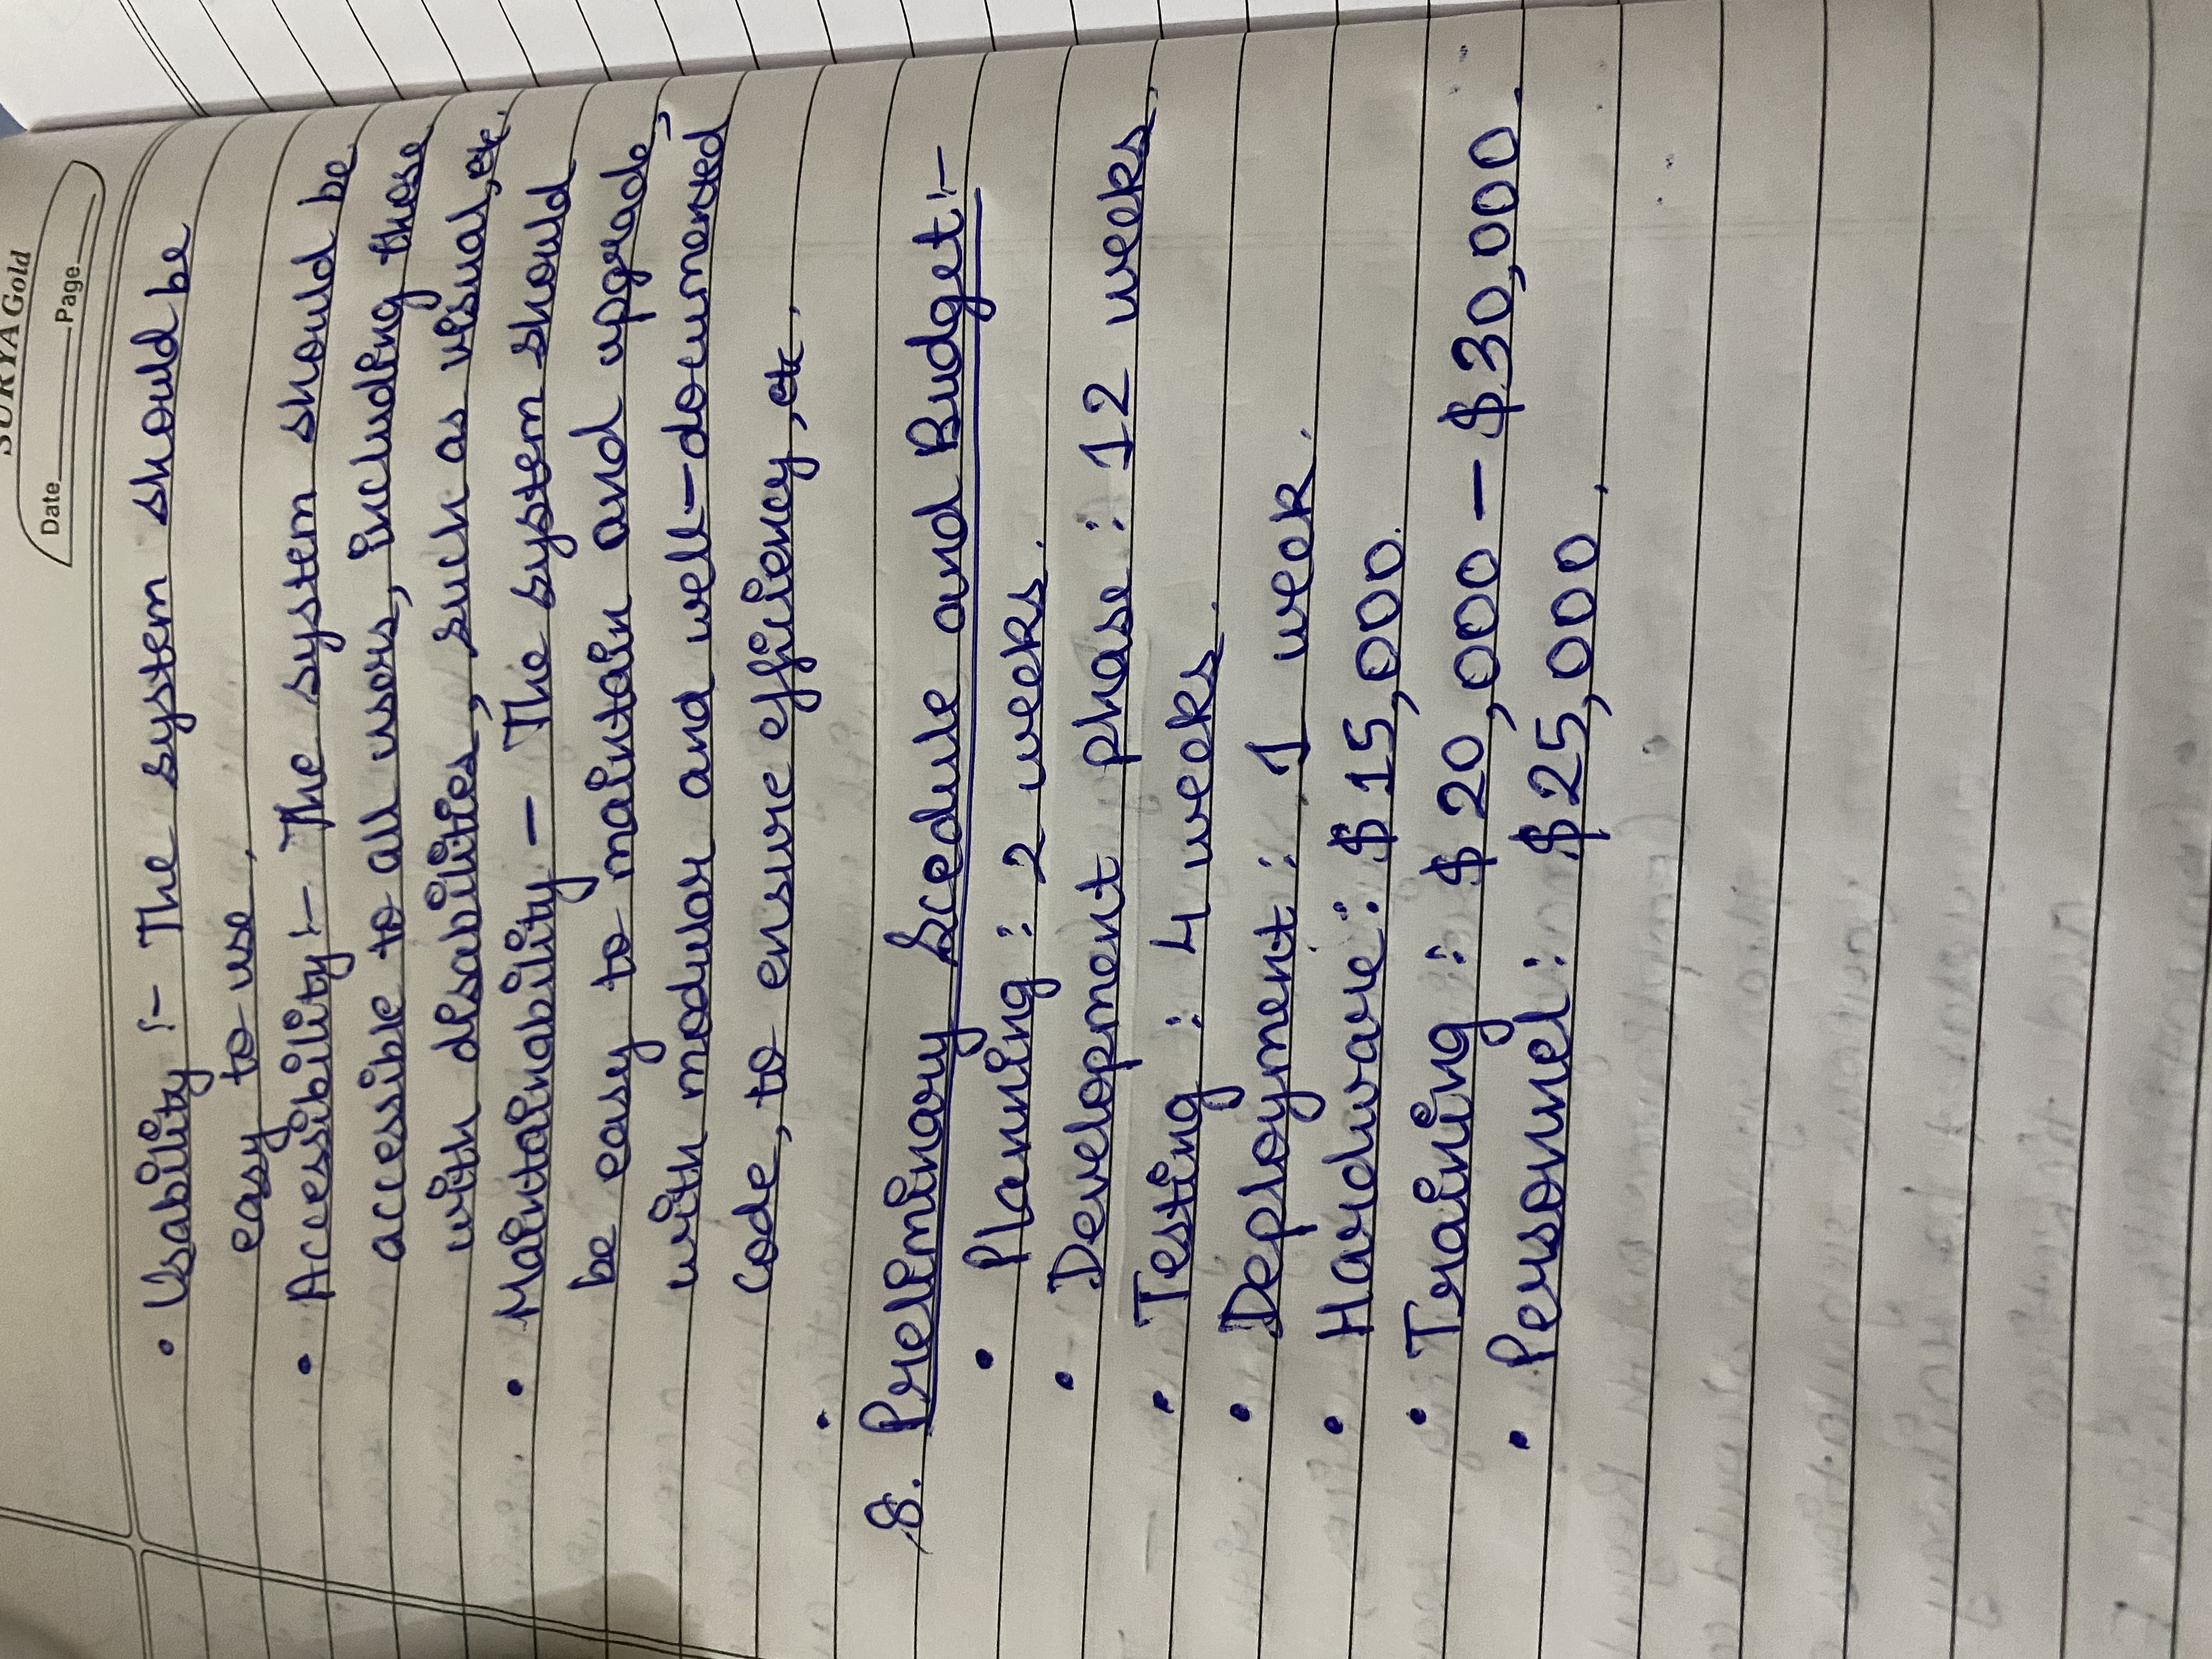 SURYA Gold
Date Page
• Usability :- The system should be
easy to use.
• Accessibility :- The system should be
accessible to all users, including those
with disabilities, such as visual, etc.
• Maintainability - The system should
be easy to maintain and upgrade,
with modular and well-documented
code, to ensure efficiency, etc.
•
8. Preliminary Scedule and Budget :-
• Planning : 2 weeks.
• Development phase : 12 weeks.
• Testing : 4 weeks.
• Deployment : 1 week.
• Hardware : $15,000.
• Training : $20,000 - $30,000.
• Personnel : $25,000.